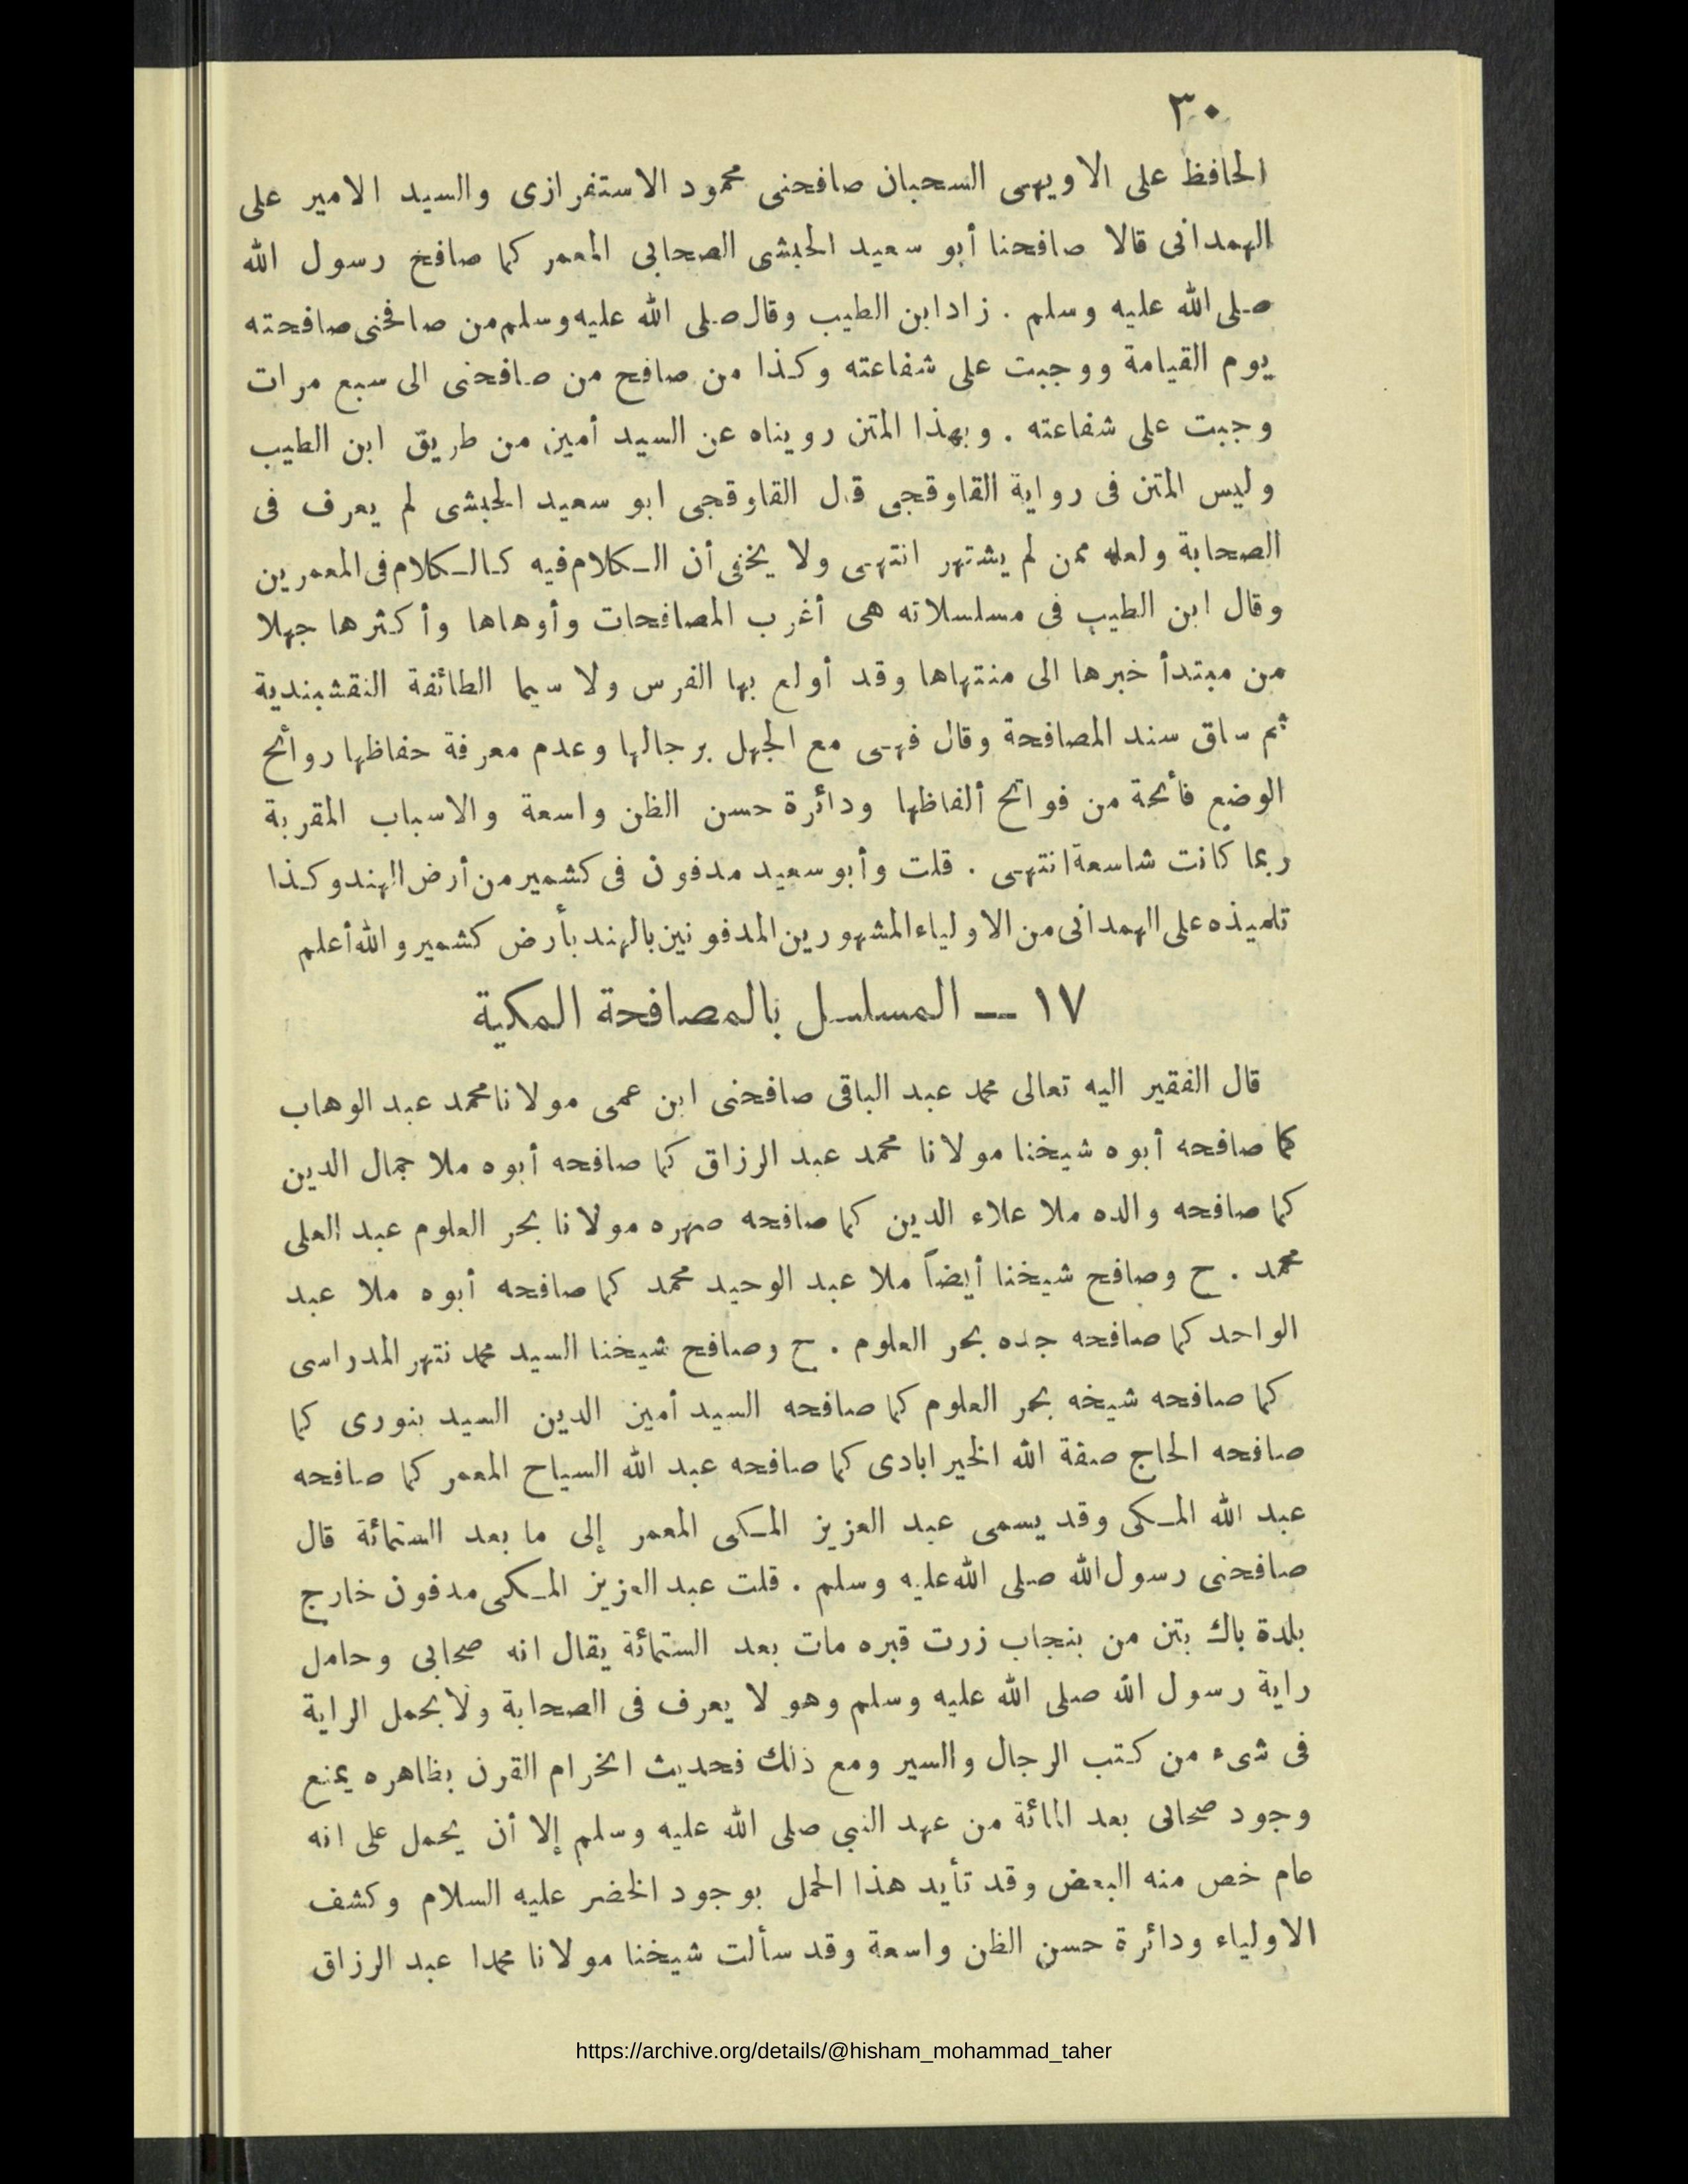 ٣٠
الحافظ على الاويهى السحبان صافحنى محمود الاستفرازى والسيد الامير على
الهمدانى قالا صافحنا أبو سعيد الحبشى الصحابى المعمر كما صافح رسول الله
صلى الله عليه وسلم . زاد ابن الطيب وقال صلى الله عليه وسلم من صافحنى صافحته
يوم القيامة ووجبت على شفاعته وكذا من صافح من صافحنى الى سبع مرات
وجبت على شفاعته . وبهذا المتن رويناه عن السيد أمين من طريق ابن الطيب
وليس المتن فى رواية القاوقجى قال القاوقجى ابو سعيد الحبشى لم يعرف فى
الصحابة ولعله ممن لم يشتهر انتهى ولا يخفى أن الكلام فيه كالكلام فى المعمرين
وقال ابن الطيب فى مسلسلاته هى أغرب المصافحات وأوهاها وأكثرها جهلا
من مبتدأ خبرها الى منتهاها وقد أولع بها الفرس ولا سيما الطائفة النقشبندية
ثم ساق سند المصافحة وقال فهى مع الجهل برجالها وعدم معرفة حفاظها روائح
الوضع فائحة من فواتح ألفاظها ودائرة حسن الظن واسعة والاسباب المقربة
ربما كانت شاسعة انتهى . قلت وأبو سعيد مدفون فى كشمير من أرض الهند وكذا
تلميذه على الهمدانى من الاولياء المشهورين المدفونين بالهند بأرض كشمير والله أعلم
١٧ — المسلسل بالمصافحة المكية
قال الفقير اليه تعالى محمد عبد الباقى صافحنى ابن عمى مولانا محمد عبد الوهاب
كما صافحه أبوه شيخنا مولانا محمد عبد الرزاق كما صافحه أبوه ملا جمال الدين
كما صافحه والده ملا علاء الدين كما صافحه صهره مولانا بحر العلوم عبد العلى
محمد . ح وصافح شيخنا أيضاً ملا عبد الوحيد محمد كما صافحه أبوه ملا عبد
الواحد كما صافحه جده بحر العلوم . ح وصافح شيخنا السيد محمد نتهر المدراسى
كما صافحه شيخه بحر العلوم كما صافحه السيد أمين الدين السيد بنورى كما
صافحه الحاج صفة الله الخير ابادى كما صافحه عبد الله السياح المعمر كما صافحه
عبد الله المكى وقد يسمى عبد العزيز المكى المعمر إلى ما بعد الستمائة قال
صافحنى رسول الله صلى الله عليه وسلم . قلت عبد العزيز المكى مدفون خارج
بلدة باك بتن من بنجاب زرت قبره مات بعد الستمائة يقال انه صحابى وحامل
راية رسول الله صلى الله عليه وسلم وهو لا يعرف فى الصحابة ولا بحمل الراية
فى شىء من كتب الرجال والسير ومع ذلك فحديث انخرام القرن بظاهره يمنع
وجود صحابى بعد المائة من عهد النبى صلى الله عليه وسلم إلا أن يحمل على انه
عام خص منه البعض وقد تأيد هذا الحمل بوجود الخضر عليه السلام وكشف
الاولياء ودائرة حسن الظن واسعة وقد سألت شيخنا مولانا محمدا عبد الرزاق
https://archive.org/details/@hisham_mohammad_taher